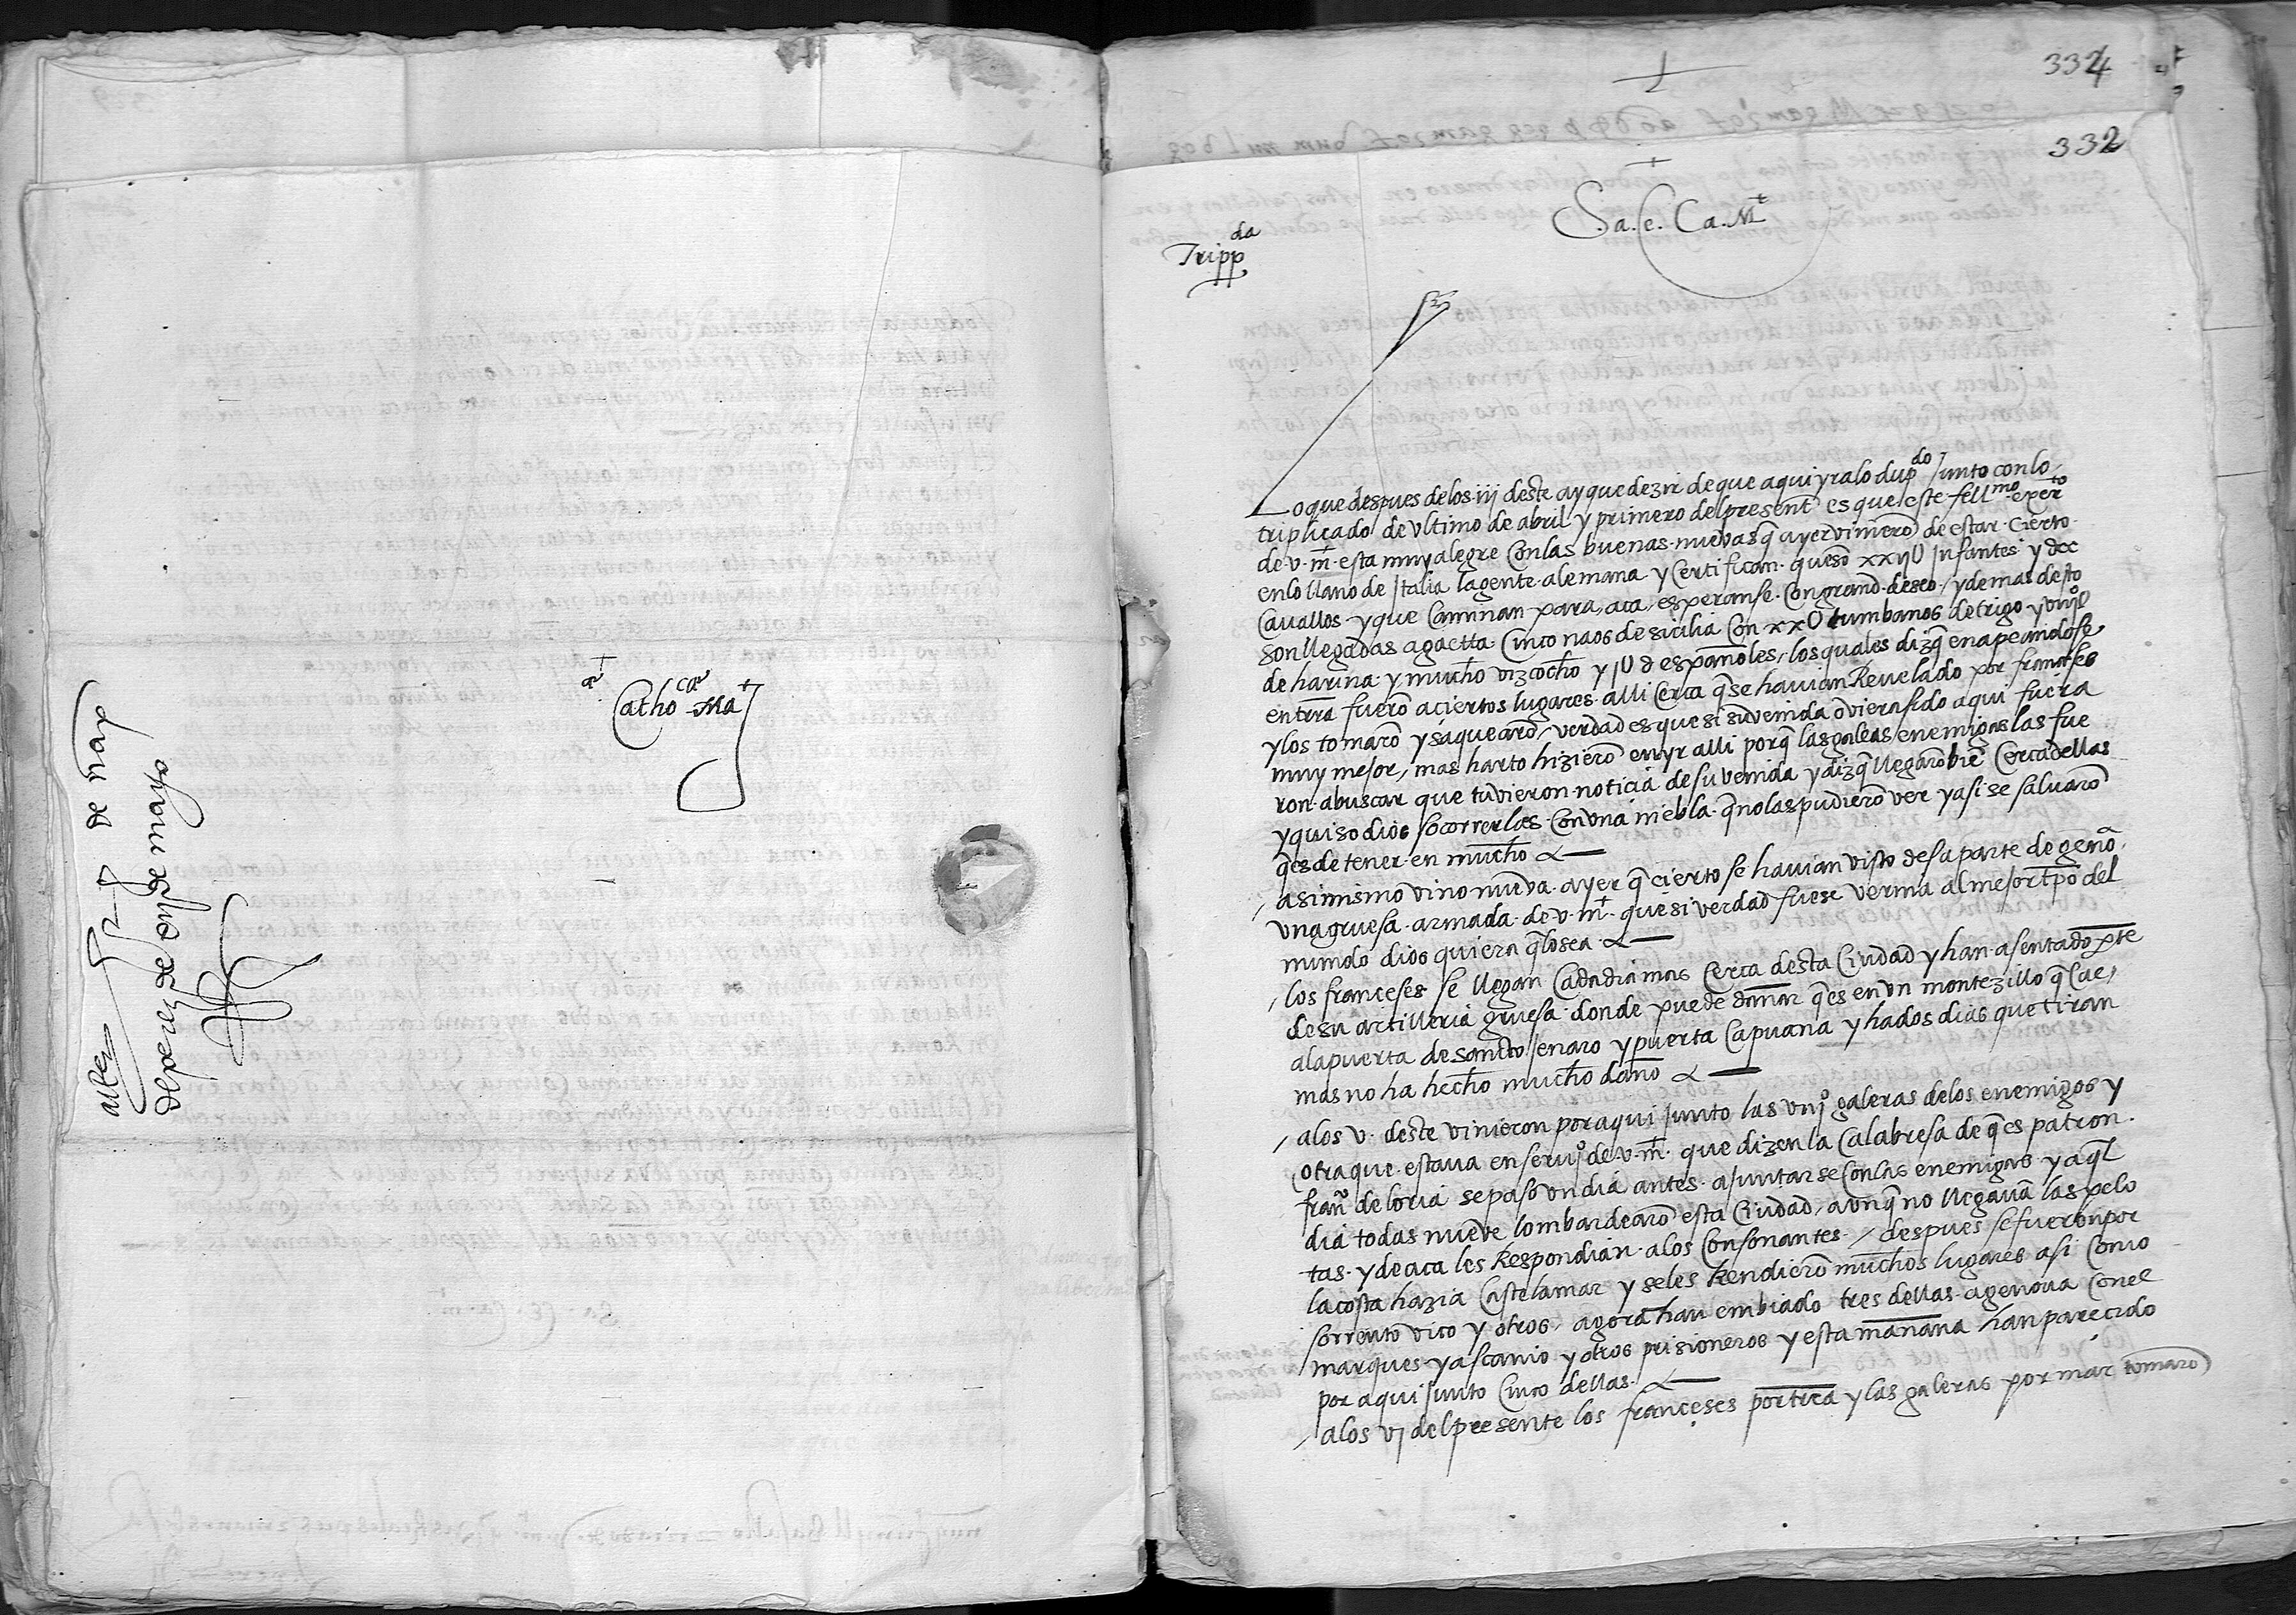 Cathoca Mat
al Rey
de nap
de perez de onze de mayo
334
332
S. a. Ce. Ca. Mt
Trippda
Lo que despues delos iij deste ay que dezir de que aqui yra lo dupdo Junto con lo
triplicado de ultimo de abril y primero del present es que este fellmo exerto
de v. mt esta muy alegre con las buenas nuevas q ayer viniero de estar cierto
en lo llano de Italia la gente alemana y certifican que so xxijU Infantes y dcc
cavallos y que caminan para aca esperanse con grand deseo / y demas desto
son llegadas a gaetta cinco naos de sicilia con xxU tumbanos de trigo y
de harina y mucho vizcocho y jU de españoles, los quales dizq en apeandose
en trra fuero a ciertos lugares alli cerca q se havian Revelado por franceses
y los tomaro y saquearo / verdad es que si su venida oviera sido aqui fuera
muy mejor, mas harto hiziero en yr alli porq las galeas enemigas las fue
ron a buscar que tuvieron noticia de su venida y dizq llegaro bie cerca dellas
y quiso dios socorrerlas con una niebla q no las pudiero ver y asi se salvaro
qes de tener en mucho
/ asimismo vino nueva ayer q cierto se havian visto desa parte de genoa
una gruesa armada de v. mt. que si verdad fuese vernia al mejor tpo del
mundo dios quiera q lo sea
/ los franceses se llegan cada dia mas cerca desta Ciudad y han asentado pte
de su artilleria gruesa donde puede dañar qes en un montezillo q cae
a la puerta de sancto Jenaro y puerta Capuana y ha dos dias que tiran
mas no ha hecho mucho daño
/ a los v. deste vinieron por aqui junto las viijo galeras delos enemigos y
otra que estava en servio de v. mt. que dizen la Calabresa de qes patron
franco de loria se paso un dia antes a juntarse con las enemigas y aql
dia todas nueve lombardearo esta Ciudad / aunq no llegava las pelo
tas y de aca les Respondian a los consonantes / despues se fueron por
la costa hazia Castelamar y se les Rendiero muchos lugares asi como
sorrento vico y otros / agora han embiado tres dellas a genova con el
marques y ascanio y otros prisioneros y esta mañana han parecido
por aqui junto cinco dellas
/ a los vj del presente los franceses por trra y las galeras por mar tomaro